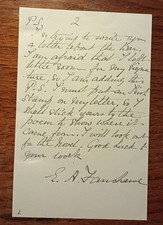 P.S. 2
In trying to write you
a letter about the war.
I am afraid that I left
little room for my signa-
ture, so I am adding this
P.S. I must put an Irish
stamp on my letter, so I
shall stick yours to the
to show where it
came from. I will look out
for the book. Good luck to
your work
E. A. Fanshawe
2